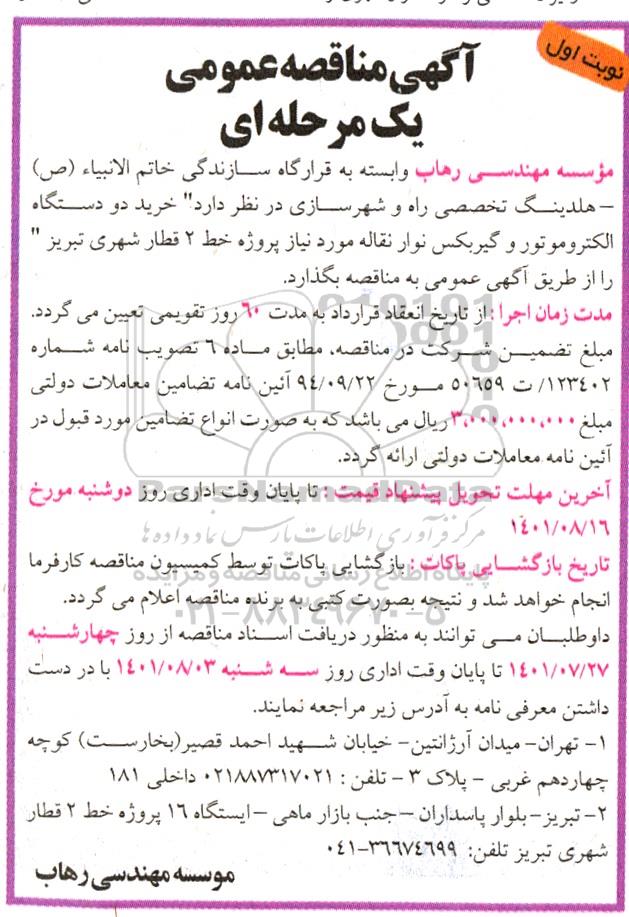 نوبت اول
آگهی مناقصه عمومی
یک مرحله ای
مؤسسه مهندسـی رهاب وابسته به قرارگاه سـازندگی خاتم الانبیاء (ص)
– هلدینگ تخصصی راه و شهرسـازی در نظر دارد" خرید دو دسـتگاه
الکتروموتور و گیربکس نوار نقاله مورد نیاز پروژه خط ۲ قطار شهری تبریز "
را از طریق آگهی عمومی به مناقصه بگذارد.
مدت زمان اجرا : از تاریخ انعقاد قرارداد به مدت ۶۰ روز تقویمی تعیین می گردد.
مبلغ تضمیـن شـرکت در مناقصه، مطابق مـاده ۶ تصویب نامه شـماره
۱۲۳۴۰۲/ ت ۵۰۶۵۹ مـورخ ۹۴/۰۹/۲۲ آئین نامه تضامین معاملات دولتی
مبلغ ۳،۰۰۰،۰۰۰،۰۰۰ ریال می باشد که به صورت انواع تضامین مورد قبول در
آئین نامه معاملات دولتی ارائه گردد.
آخرین مهلت تحویل پیشنهاد قیمت : تا پایان وقت اداری روز دوشنبه مورخ
۱۴۰۱/۰۸/۱۶
تاریخ بازگشـایی پاکات : بازگشایی پاکات توسط کمیسیون مناقصه کارفرما
انجام خواهد شد و نتیجه بصورت کتبی به برنده مناقصه اعلام می گردد.
داوطلبـان مـی توانند به منظور دریافت اسـناد مناقصه از روز چهارشـنبه
۱۴۰۱/۰۷/۲۷ تا پایان وقت اداری روز سـه شـنبه ۱۴۰۱/۰۸/۰۳ با در دست
داشتن معرفی نامه به آدرس زیر مراجعه نمایند.
۱- تهران- میدان آرژانتین- خیابان شـهید احمد قصیر(بخارسـت) کوچه
چهاردهم غربی - پلاک ۳ - تلفن : ۰۲۱۸۸۷۳۱۷۰۲۱ داخلی ۱۸۱
۲- تبریز- بلوار پاسداران – جنب بازار ماهی – ایستگاه ۱۶ پروژه خط ۲ قطار
شهری تبریز تلفن: ۳۶۶۷۴۶۹۹-۰۴۱
موسسه مهندسی رهاب
ParsNamadData
مرکز فرآوری اطلاعات پارس نماد داده ها
پایگاه اطلاع رسانی مناقصه و مزایده
۰۲۱-۸۸۳۴۹۶۷۰-۵